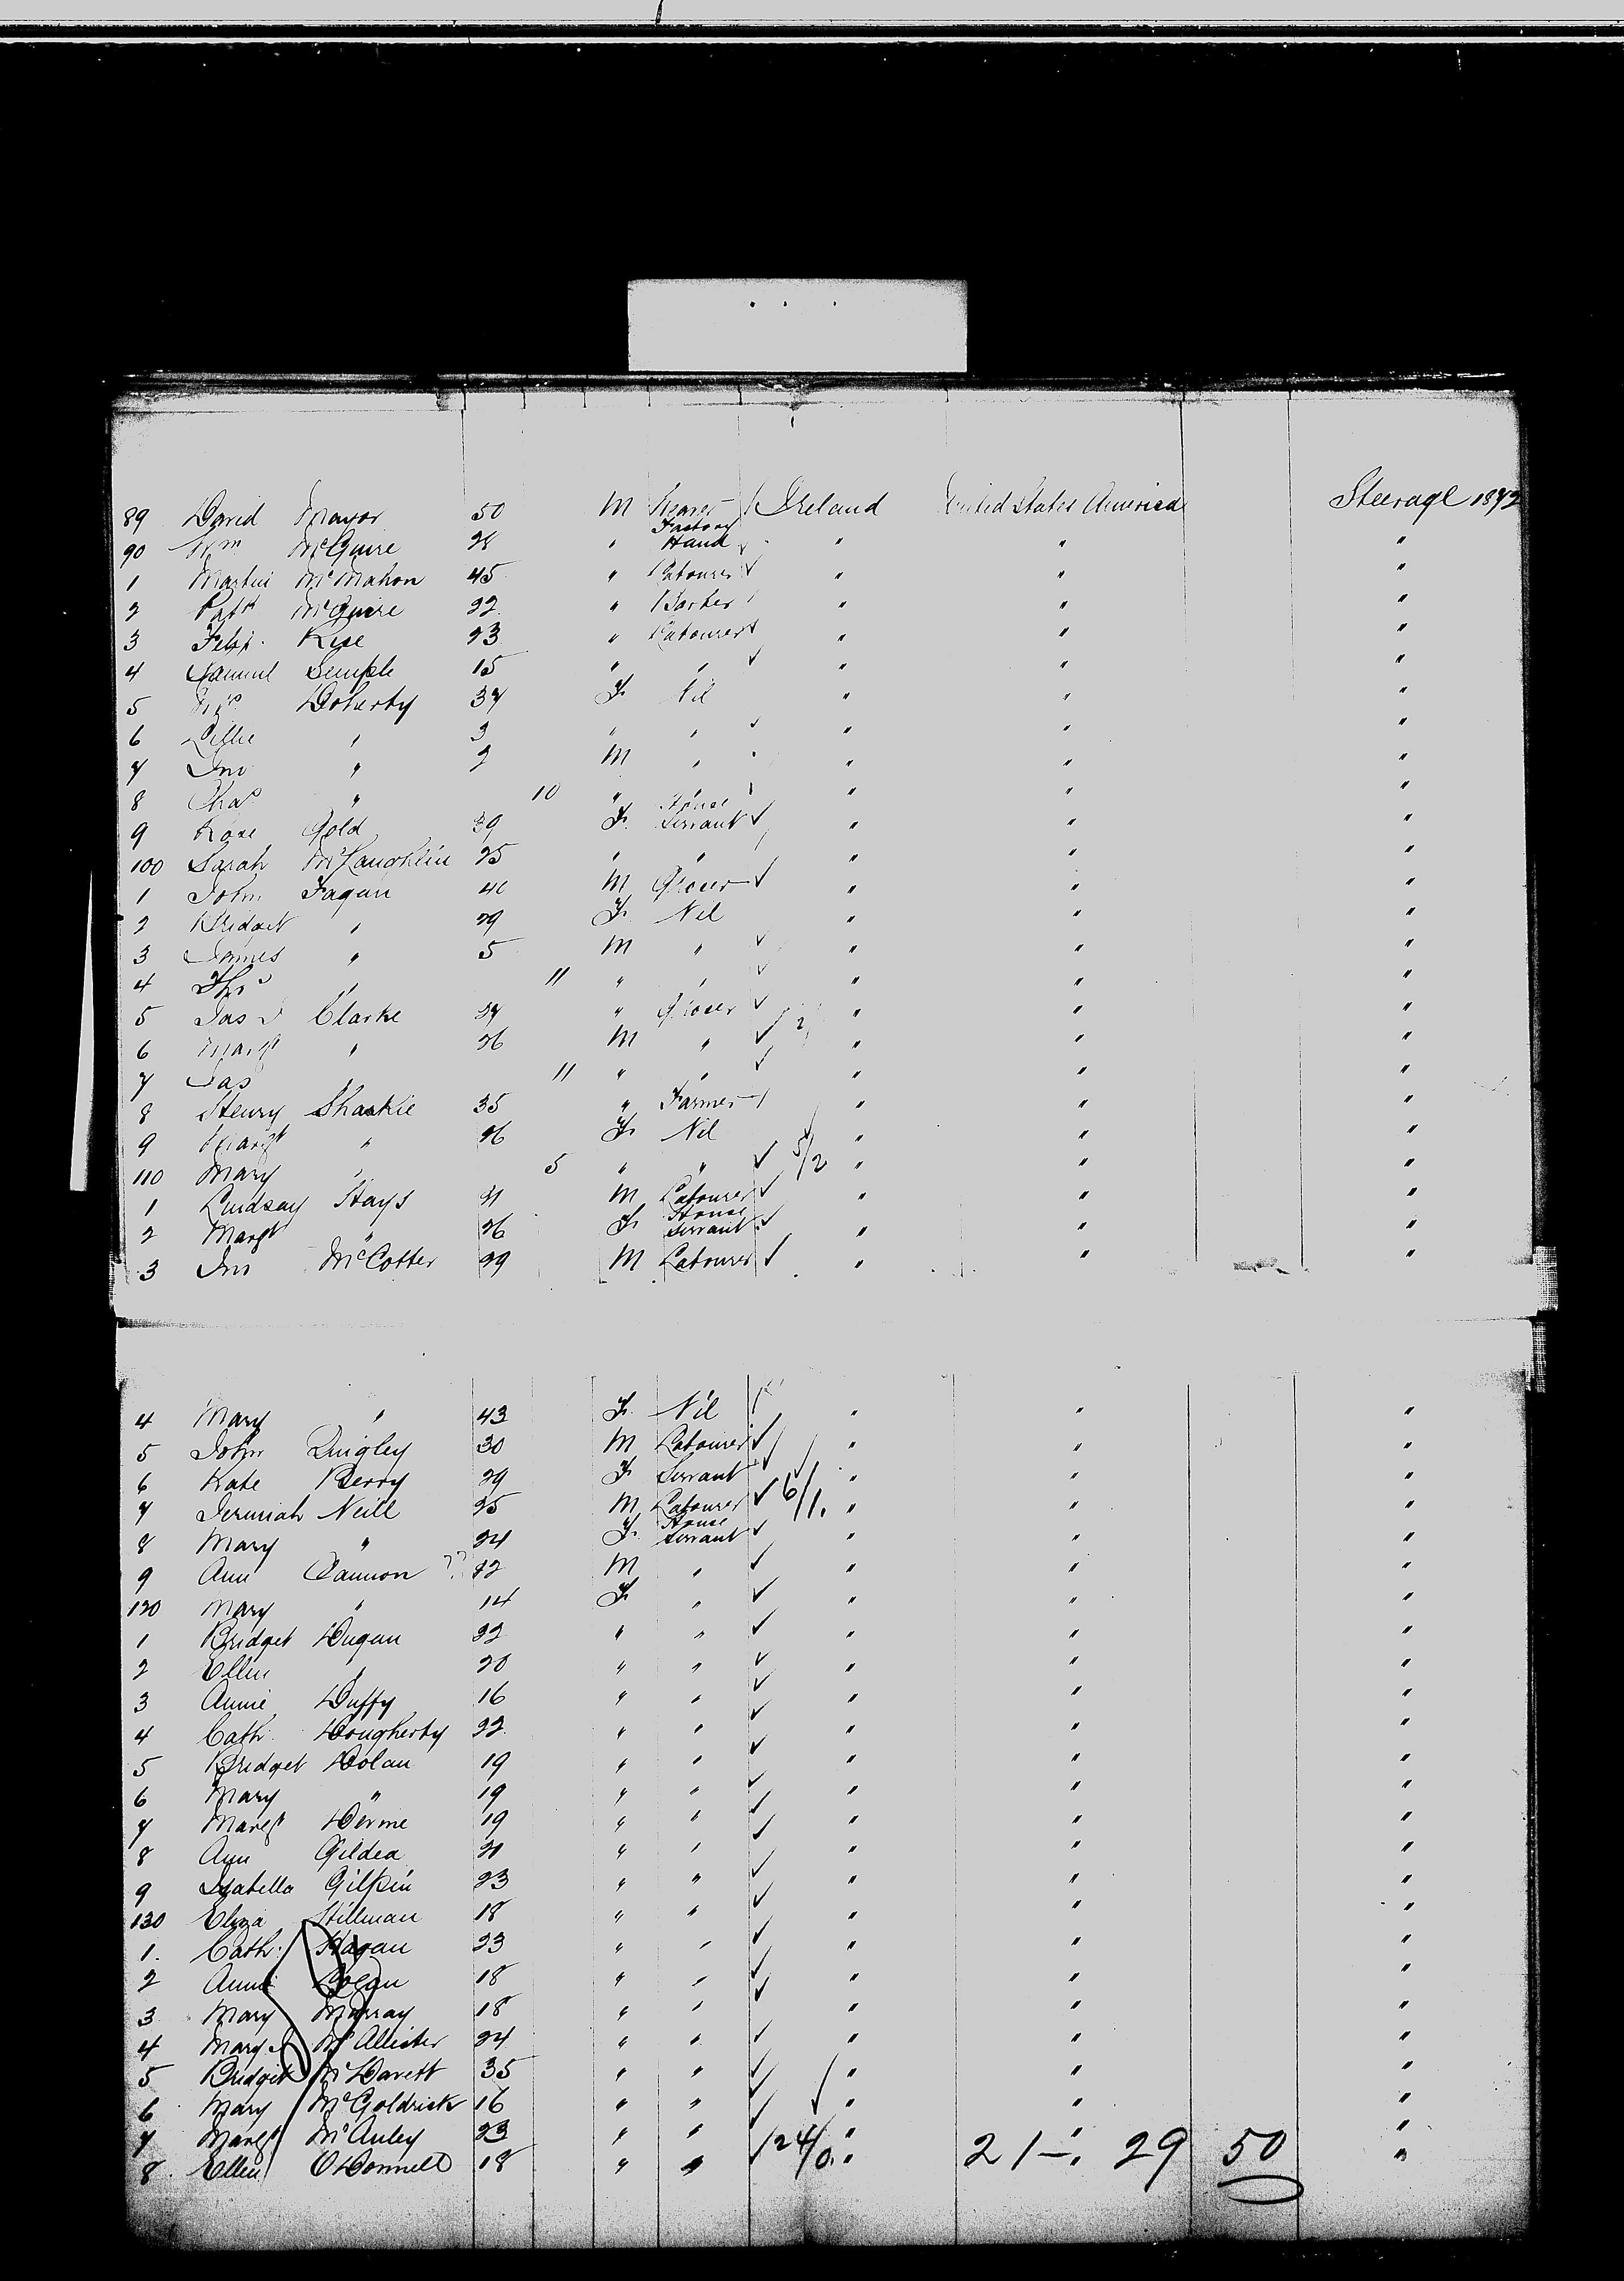 89 David Mayor 50 M Weaver Ireland United States America Steerage 1872
90 Wm McGuire 28 " Factory Hand " " "
1 Martin McMahon 45 " Labourer " " "
2 Patk McGuire 22 " Barber " " "
3 Felix 23 " Labourer " " "
4 Samuel Semple 15 " " " " "
5 Mrs Doherty 37 F Nil " " "
6 Lillie " 3 " " " " "
7 Jno " 2 M " " " "
8 Chas " 10 " " " " "
9 Rose Gold 39 F. House Servant " " "
100 Sarah McLaughlin 25 " " " " "
1 John Fagan M Grocer " " "
2 Bridget " 29 F. Nil " " "
3 James " 5 M " " " "
4 Thos " 11 " " " " "
5 Jas Clarke " Grocer " " "
6 Margt " 26 M " " " "
7 Jas " 11 " " " " "
8 Henry Sharkie 35 " Farmer " " "
9 Margt " 26 F. Nil " " "
110 Mary " 5 " " 5/2 " " "
1 Lindsay Hays 21 M Labourer " " "
2 Margt " 26 F. House Servant " " "
3 Jno McCotter 29 M Labourer " " "
4 Mary " 43 F. Nil " " "
5 John Quigley 30 M Labourer " " "
6 Kate Berry 29 F. Servant " " "
7 Jeremiah Neill 25 M Labourer 6/1. " " "
8 Mary " 24 F. House Servant " " "
9 Ann Cannon ?? M " " " "
120 Mary " 14 F. " " " "
1 Bridget Dugan 22 " " " " "
2 Ellen " 20 " " " " "
3 Annie Duffy 16 " " " " "
4 Cath. Dougherty 22 " " " " "
5 Bridget Dolan 19 " " " " "
6 Mary " 19 " " " " "
7 Margt 19 " " " " "
8 Ann Gildea 21 " " " " "
9 Isabella Gilpin 23 " " " " "
130 Eliza Hillman 18 " " " " "
1. Cath. Hagan 23 " " " " "
2 Annie Logan 18 " " " " "
3 Mary Murray 18 " " " " "
4 Mary J McAllister 24 " " " " "
5 Bridget 35 " " " " "
6 Mary McGoldrick 16 " " " " "
7 Margt McAuley 23 " " " " "
8. Ellen O'Donnell 18 " " 24/0. " 21-. 29 50 "